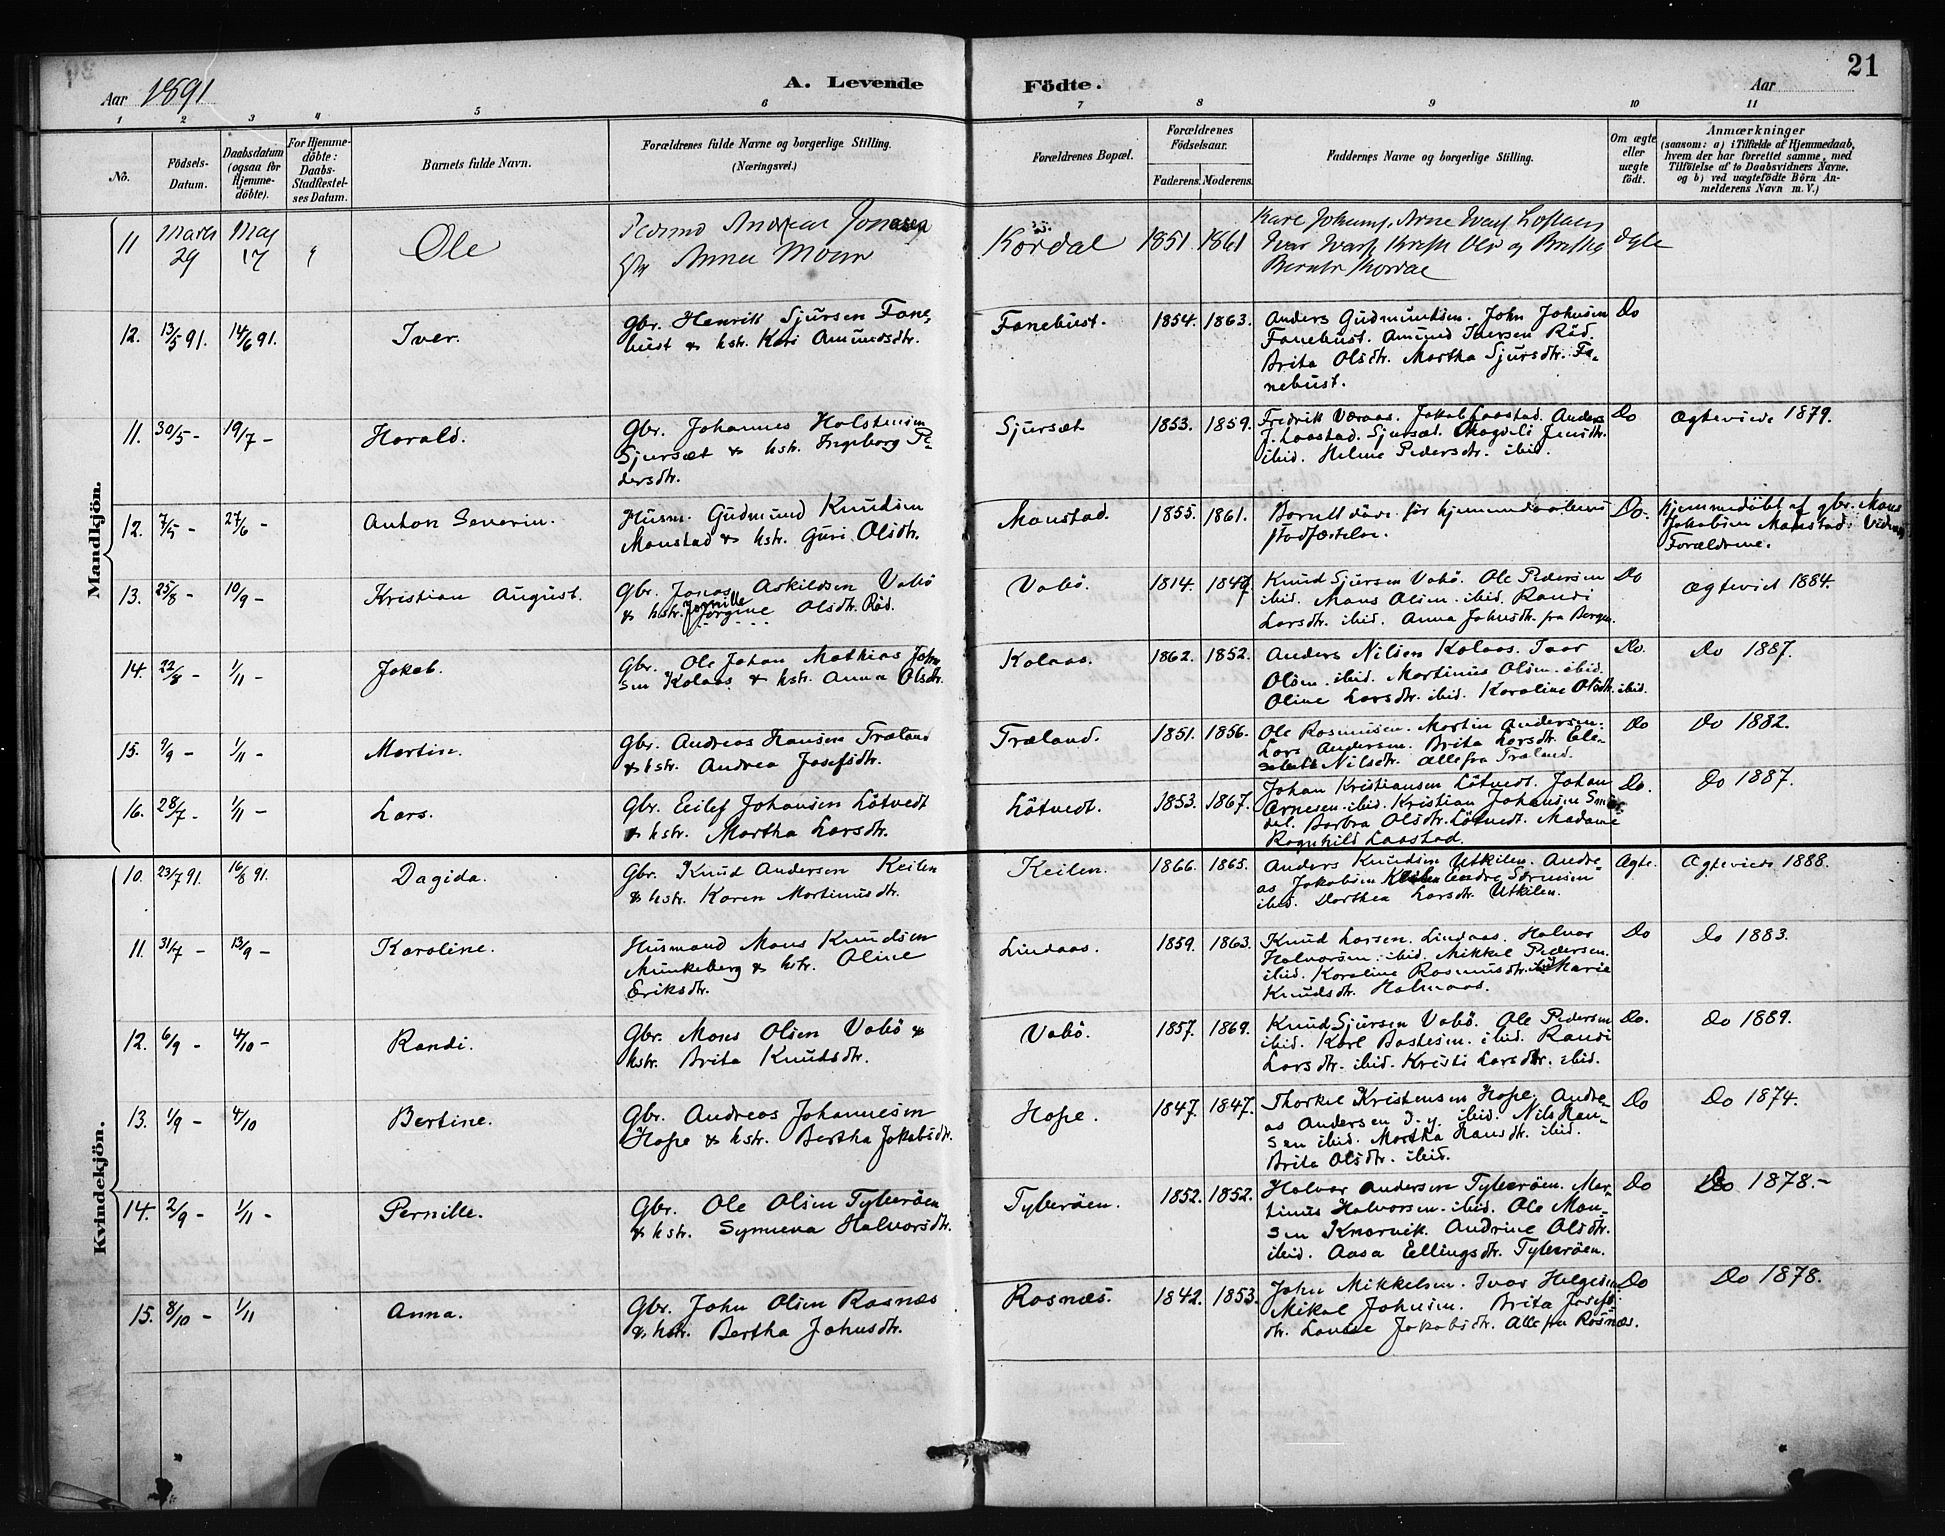 Aar 1891
A. Levende
Födte.
Aar
21
1 2 3 4 5 6 7 8 9 10 11
No.
Födsels-Datum.
Daabsdatum (ogsaa for Hjemme-döbte).
For Hjemme-döbte: Daabs-Stadfæstel-ses Datum.
Barnets fulde Navn.
Forældrenes fulde Navne og borgerlige Stilling. (Næringsvei.)
Forældrenes Bopæl.
Forældrenes Födselsaar.
Faderens. Moderens.
Faddernes Navne og borgerlige Stilling.
Om ægte eller uægte födt.
Anmærkninger
(saasom: a) i Tilfælde af Hjemmedaab, hvem der har forrettet samme, med Tilföielse af to Daabsvidners Navne, og b) ved uægtefödte Börn An-melderens Navn m. V.)
Mandkjön.
11 Marts 29 Maj 17 Ole
Andreas Jonasen
Anna Moen
Kordal 1851. 1861
Ægte
12. 13/5 91. 14/6 91. Iver.
Gbr. Henrik Sjursen Fane-
bust & hstr. Kari Amundsdtr.
Fanebust. 1854. 1863.
Anders Gudmundsen. John Johnsen
Fanebust. Amund Iversen Röd.
Brita Olsdtr. Martha Sjursdtr. Fa-
nebust.
Do
11. 30/5 - 19/7 - Harald.
Gbr. Johannes Holstensen
Sjursæt & hstr. Ingeborg Pe-
dersdtr.
Sjursæt 1853. 1859.
Fredrik Væraas. Jakob Laastad. Anders
J. Laastad. Sjursæt. Magdeli Jensdtr.
ibid. Helene Pedersdtr. ibid.
Do
Ægteviede 1879.
12. 7/5 - 27/6 - Anton Severin.
Husm. Gudmund Knudsen
Monstad & hstr. Guri Olsdtr.
Monstad. 1855. 1861.
Barnet döde för hjemmedaabens
stadfæstelse.
Do.
Hjemmedöbt af gbr. Mons
Jakobsen Monstad. Vidner
Forældrene.
13. 25/8 - 10/9 - Kristian August.
Gbr. Jonas Askildsen Vabö
& hstr. Jørgine Olsdtr. Röd.
Vabö. 1814. 1847
Knud Sjursen Vabö. Ole Pedersen
ibid. Mons Olsen ibid. Randi
Larsdtr. ibid. Anna Johnsdtr. fra Bergen.
Do
Ægteviet 1884.
14. 22/8 - 1/11 - Jakob.
Gbr. Ole Johan Mathias John-
sen Kolaas & hstr. Anna Olsdtr.
Kolaas. 1862. 1852.
Anders Nilsen Kolaas. Ivar
Olsen ibid. Martinus Olsen ibid.
Oline Larsdtr. ibid. Karoline Olsdtr. ibid.
Do.
Do 1887.
15. 9/9 - 1/11 - Martin.
Gbr. Andreas Hansen Træland
& hstr. Andrea Josefsdtr.
Træland. 1851. 1856.
Ole Rasmussen. Martin Andersen.
Lars Andersen. Brita Larsdtr. Ele-
Nilsdtr. Alle fra Træland.
Do
Do 1882.
16. 28/7 - 1/11 - Lars.
Gbr. Eilef Johansen Lötvedt
& hstr. Martha Larsdtr.
Lötvedt. 1853. 1867.
Johan Kristiansen Lötvedt. Johan
Arnesen ibid. Kristian Johansen
Barbra Olsdtr. Lötvedt. Madame
Ragnhild Laastad.
Do.
Do 1887.
Kvindekjön.
10. 23/7 91. 16/8 91. Dagida.
Gbr. Knud Andersen Keilen
& hstr. Karen Martinusdtr.
Keilen. 1866. 1865.
Anders Knudsen Utkilen. Andre-
as Jakobsen Keilen Endre Sörensen
ibid. Dorthea Larsdtr. Utkilen.
Ægte.
Ægteviede 1888.
11. 31/7 - 13/9 - Karoline.
Husmand Mons Knudsen
Munkeberg & hstr. Oline
Eriksdtr.
Lindaas. 1859. 1863.
Knud Larsen. Lindaas. Halvor
Halvorsen ibid. Mikkel Pedersen.
ibid. Karoline Rasmusdtr. ibid Marie
Knudsdtr. Halmaas.
Do
Do 1883.
12. 6/9 - 4/10 - Randi.
Gbr. Mons Olsen Vabö &
hstr. Brita Knudsdtr.
Vabö. 1857. 1869.
Knud Sjursen Vabö. Ole Pedersen
ibid. Karl Bastesen ibid. Randi
Larsdtr. ibid. Kristi Larsdtr. ibid.
Do.
Do 1889.
13. 1/9 - 4/10 Bertine.
Gbr. Andreas Johannesen
Hope & hstr. Bertha Jakobsdtr.
Hope. 1847. 1847.
Thorkel Kristensen Hope, Andre-
as Andersen D. y. ibid. Nils Han-
sen ibid. Martha Hansdtr. ibid.
Brita Olsdtr. ibid.
Do
Do 1874.
14. 2/9 - 1/11 - Pernille.
Gbr. Ole Olsen Tyberöen
& hstr. Synneva Halvorsdtr.
Tyberöen. 1852. 1852.
Halvor Andersen Tyberöen. Mar-
tinus Halvorsen ibid. Ole Mon-
sen Knarvik. Andrine Olsdtr.
ibid. Aasa Ellingsdtr. Tyberöen.
Do
Do 1878.-
15. 8/10 - 1/11 Anna.
Gbr. John Olsen Rosnæs
& hstr. Bertha Johnsdtr.
Rosnæs. 1842. 1853.
John Mikkelsen. Ivar Helgesen
Mikal Johnsen. Brita Josefs-
dtr. Lovise Jakobsdtr. Alle fra Rosnæs.
Do
Do 1878.